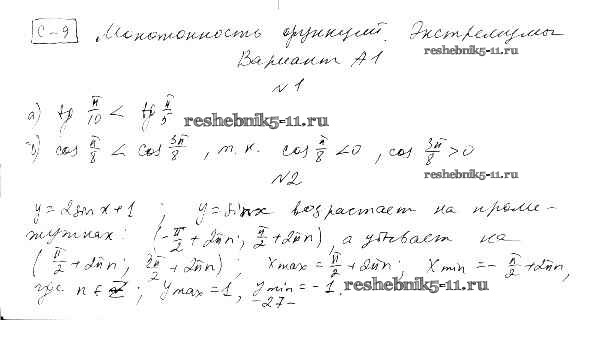 С-9 Монотонность функций. Экстремумы
reshebnik5-11.ru
Вариант А1
№1
а) tg π/10 < tg π/5
reshebnik5-11.ru
б) cos π/8 < cos 3π/8, т.к. cos π/8 < 0, cos 3π/8 > 0
№2
reshebnik5-11.ru
y = 2sin x + 1; y = sin x возрастает на проме-
жутках: (-π/2 + 2πn; π/2 + 2πn), а убывает на
(π/2 + 2πn; 3π/2 + 2πn); x max = π/2 + 2πn; x min = -π/2 + 2πn,
где n ∈ Z; y max = 1, y min = -1.
reshebnik5-11.ru
-27-